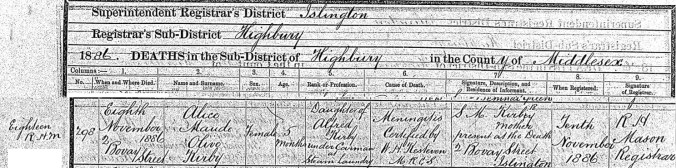 Superintendent Registrar's District Islington
Registrar's Sub-District Highbury
1886. DEATHS in the Sub-District of Highbury in the County of Middlesex
Columns:— 1. 2. 3. 4. 5. 6. 7. 8. 9.
No. When and Where Died. Name and Surname. Sex. Age. Rank or Profession. Cause of Death. Signature, Description, and Residence of Informant. When Registered. Signature of Registrar.
Eighteen
R.H.M
298
Eighth
November
1886
2 Bovay
Street
Alice
Maude
Olive
Kirby
Female
5
months
Daughter of
Alfred
Kirby
under Carman
Steam Laundry
Meningitis
Certified by
M.R.C.S
S. M. Kirby
mother
present at the Death
2 Bovay Street
Islington
Tenth
November
1886
R. H
Mason
Registrar